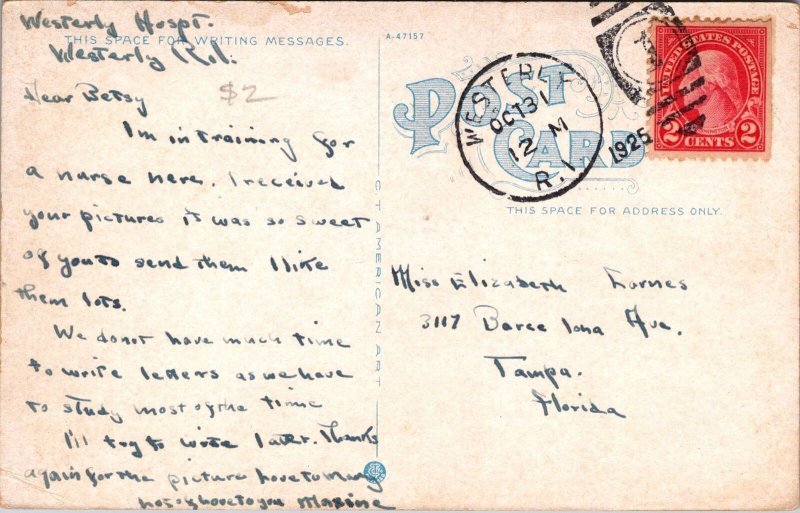 Westerly Hospt.
THIS SPACE FOR WRITING MESSAGES.
Westerly R.I.
Dear Betsy
$2
I'm in training for
a nurse here. I received
your pictures it was so sweet
of you to send them I like
them lots.
We do not have much time
to write letters as we have
to study most of the time
I'll try to write later. Thanks
again for the picture love to Mary
lots of love to you Maxine
C.T. AMERICAN ART
A-47157
POST CARD
WESTERLY
OCT 31
12 M
R.I.
1925
UNITED STATES POSTAGE
WASHINGTON
2 CENTS 2
THIS SPACE FOR ADDRESS ONLY.
Miss Elizabeth
3117 Barce lona Ave.
Tampa.
Florida